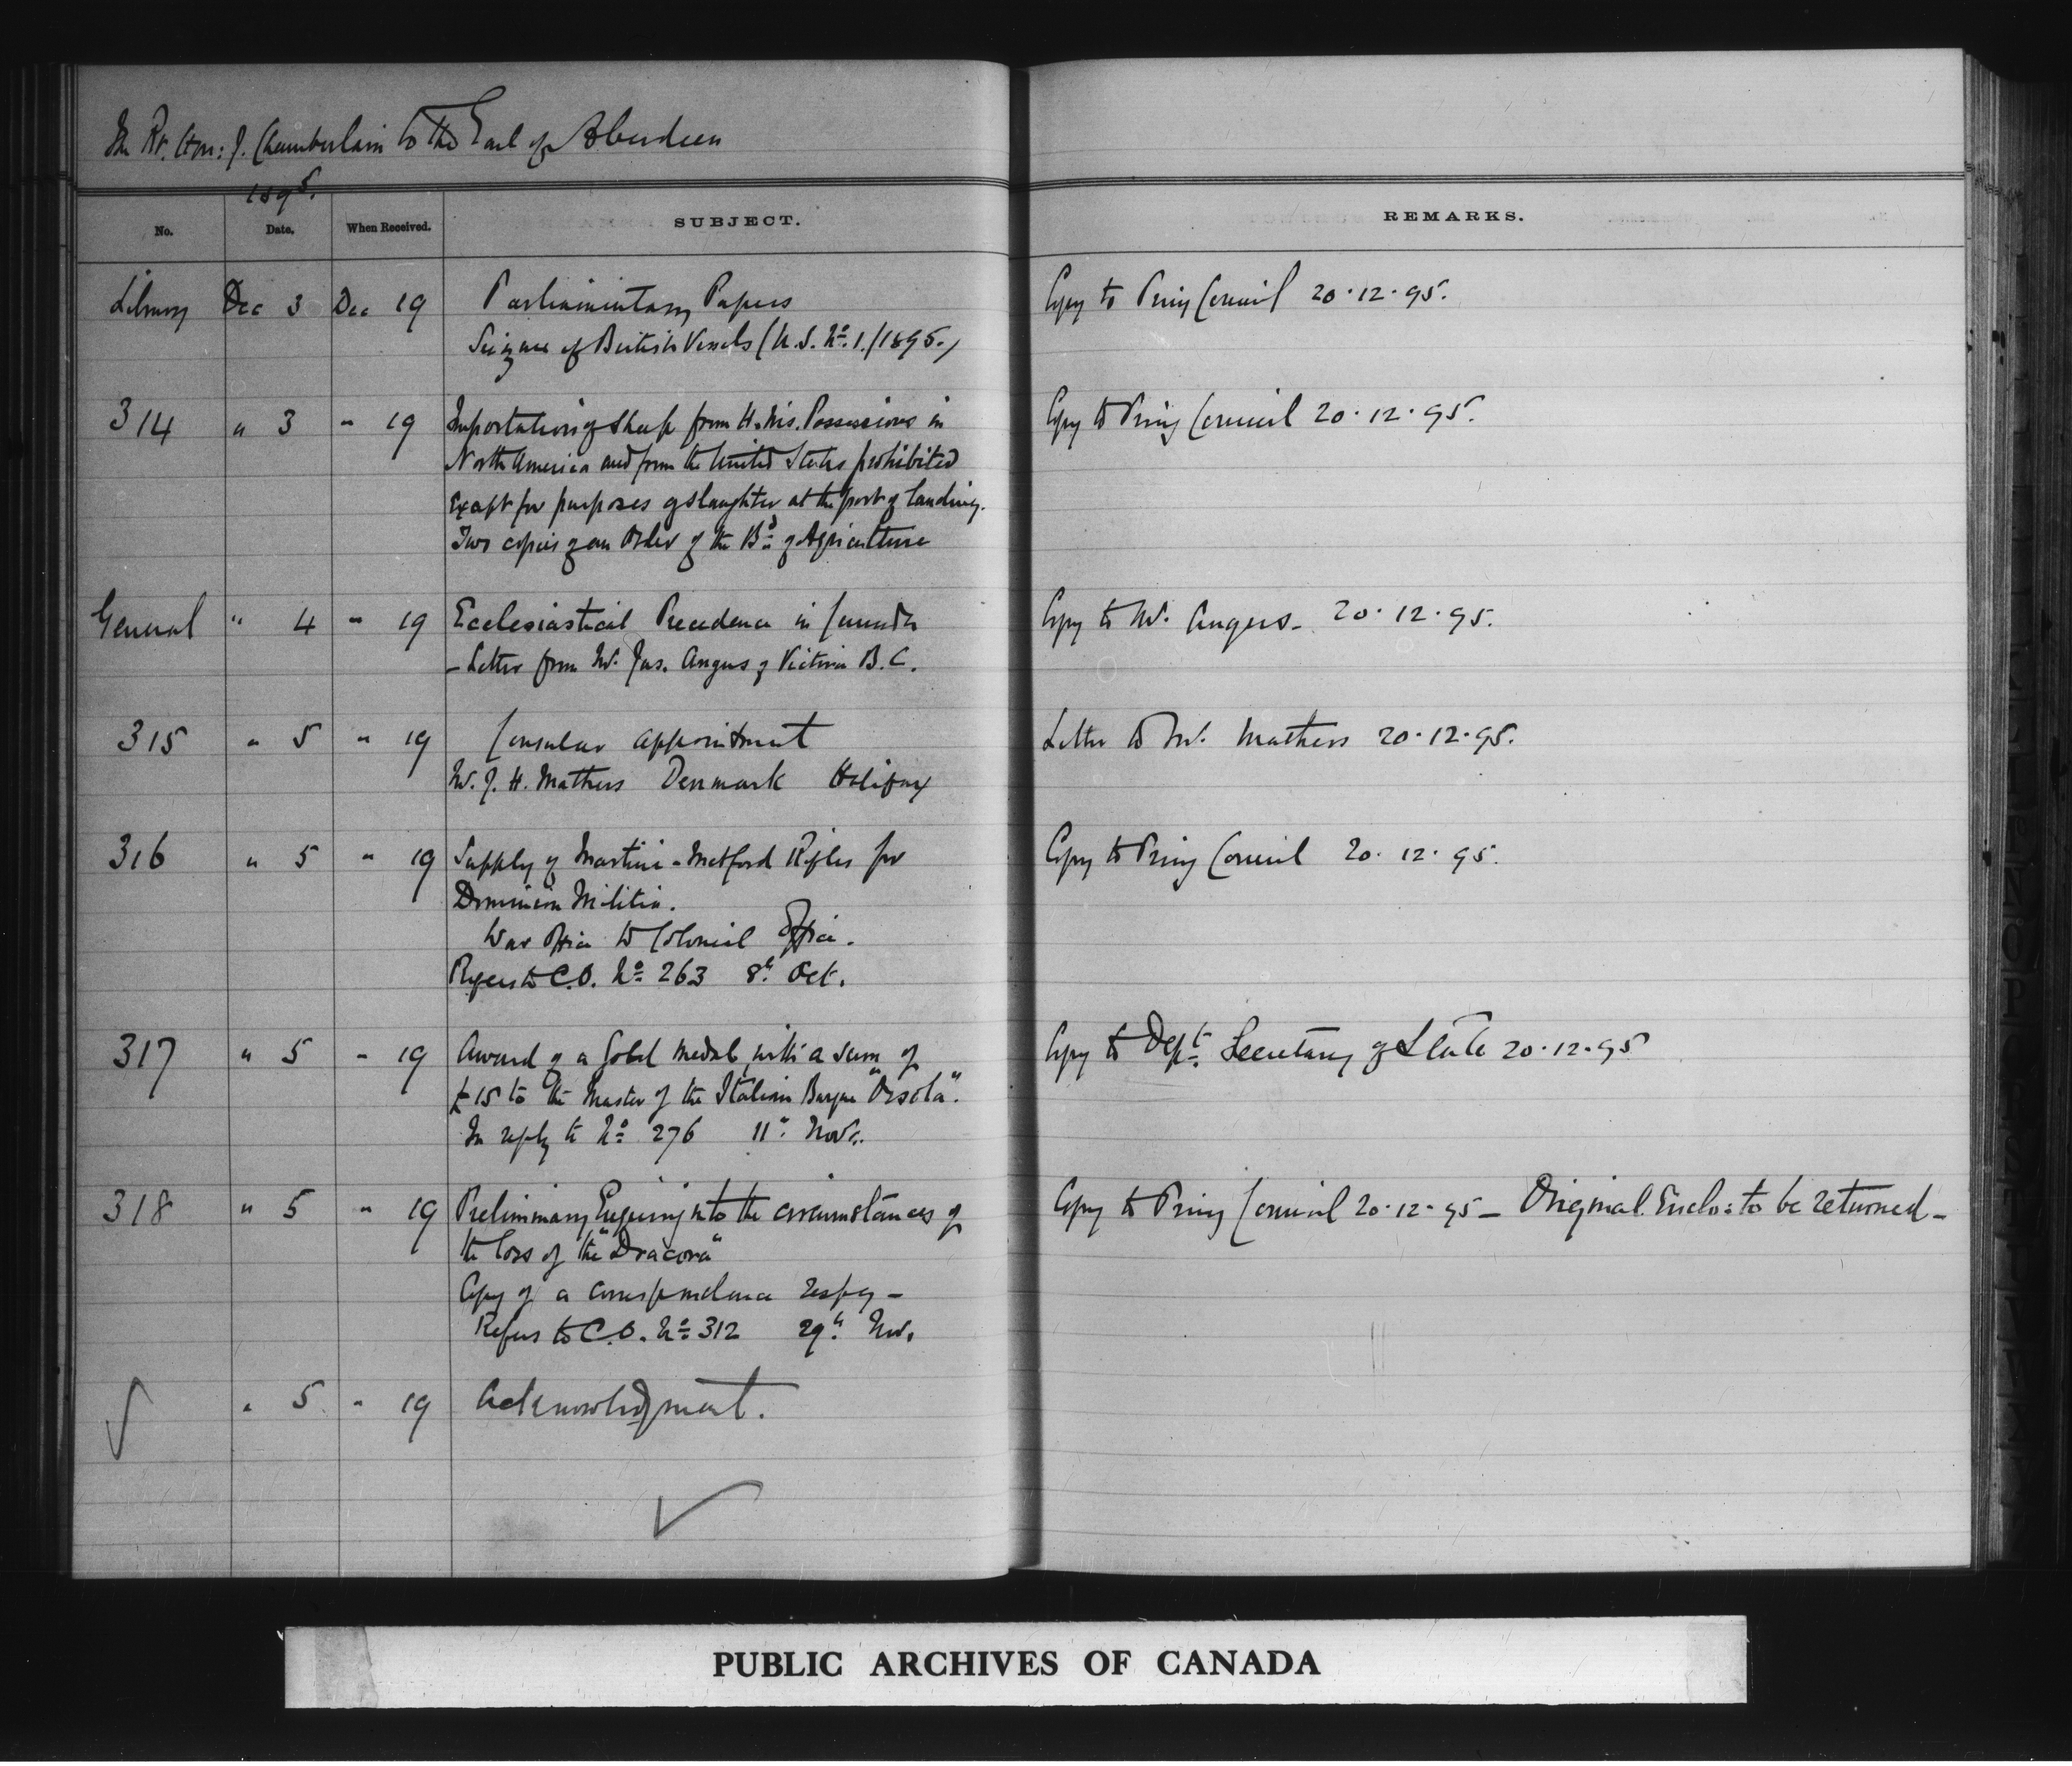 The Rt. Hon: J. Chamberlain to the Earl of Aberdeen
1895.
No. Date. When Received. SUBJECT. REMARKS.
Library Dec 3 Dec 19 Parliamentary Papers Copy to Privy Council 20.12.95.
Seizure of British Vessels (U.S. No. 1./1895.)
314 " 3 " 19 Importation of Sheep from H. M's. Possessions in Copy to Privy Council 20.12.95.
North America and from the United States prohibited
except for purposes of slaughter at the port of landing.
Two copies of an Order of the Bd. of Agriculture
General " 4 " 19 Ecclesiastical Precedence in Canada Copy to Mr. Angus - 20.12.95.
- Letter from Mr. Jas. Angus of Victoria B.C.
315 " 5 " 19 Consular appointment Letter to Mr. Mathers 20.12.95.
Mr. J. H. Mathers Denmark Halifax
316 " 5 " 19 Supply of Martini-Metford Rifles for Copy to Privy Council 20.12.95.
Dominion Militia.
War Office to Colonial Office.
Refers to C.O. No. 263 8th Oct.
317 " 5 " 19 Award of a Gold medal with a sum of Copy to Dept. Secretary of State 20.12.95
£15 to the Master of the Italian Barque "Orsola".
In reply to No. 276 11th Novr.
318 " 5 " 19 Preliminary Enquiry into the circumstances of Copy to Privy Council 20.12.95 - Original Enclo: to be returned -
the loss of the "Dracona"
Copy of a correspondence respg -
Refers to C.O. No. 312 29th Nov.
" 5 " 19 Acknowledgment.
PUBLIC ARCHIVES OF CANADA